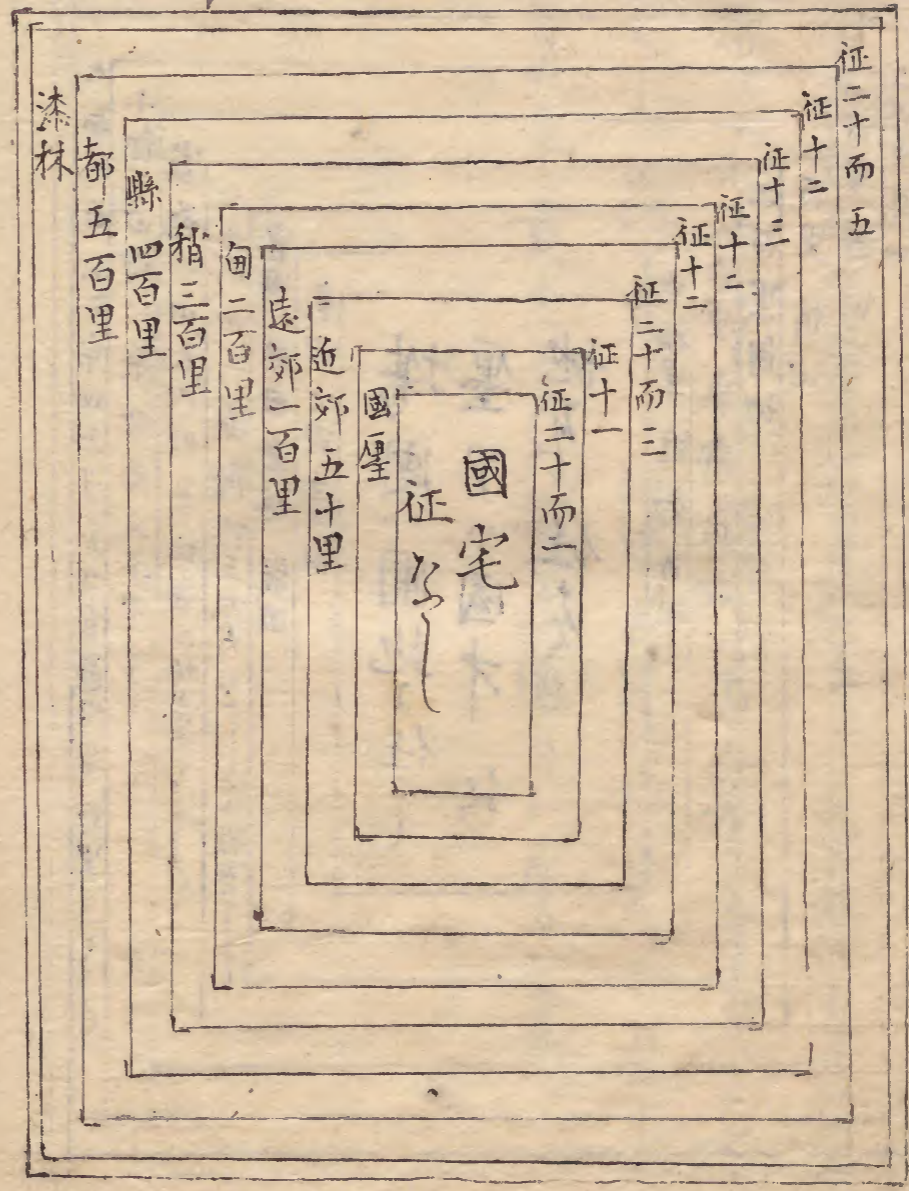 征二十而五
征十二
征十三
征十二
征十二
征二十而三
征十一
征二十而二
國宅
征なし
國㕓
近郊 五十里
遠郊一百里
甸二百里
稍三百里
縣 四百里
都五百里
漆林